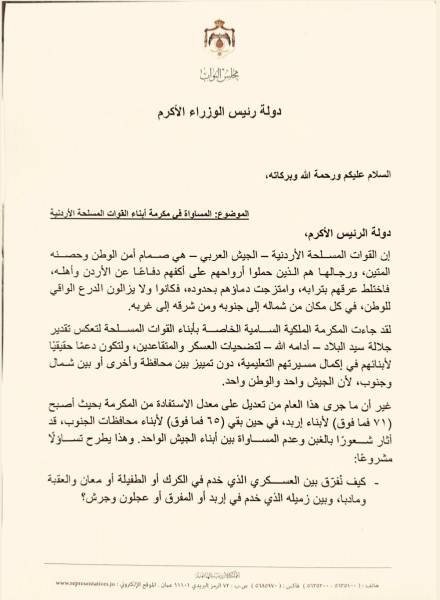 مجلس النواب
دولة رئيس الوزراء الأكرم
السلام عليكم ورحمة الله وبركاته،
الموضوع: المساواة في مكرمة أبناء القوات المسلحة الأردنية
دولة الرئيس الأكرم،
إن القوات المسلحة الأردنية – الجيش العربي – هي صمام أمن الوطن وحصنه
المتين، ورجالها هم الذين حملوا أرواحهم على أكفهم دفاعًا عن الأردن وأهله،
فاختلط عرقهم بترابه، وامتزجت دماؤهم بحدوده، فكانوا ولا يزالون الدرع الواقي
للوطن، في كل مكان من شماله إلى جنوبه ومن شرقه إلى غربه.
لقد جاءت المكرمة الملكية السامية الخاصة بأبناء القوات المسلحة لتعكس تقدير
جلالة سيد البلاد – أدامه الله – لتضحيات العسكر والمتقاعدين، ولتكون دعمًا حقيقيًا
لأبنائهم في إكمال مسيرتهم التعليمية، دون تمييز بين محافظة وأخرى أو بين شمال
وجنوب، لأن الجيش واحد والوطن واحد.
غير أن ما جرى هذا العام من تعديل على معدل الاستفادة من المكرمة بحيث أصبح
(٧١ فما فوق) لأبناء إربد، في حين بقي (٦٥ فما فوق) لأبناء محافظات الجنوب، قد
أثار شعورًا بالغبن وعدم المساواة بين أبناء الجيش الواحد. وهذا يطرح تساؤلًا
مشروعًا:
- كيف نُفرّق بين العسكري الذي خدم في الكرك أو الطفيلة أو معان والعقبة
ومادبا، وبين زميله الذي خدم في إربد أو المفرق أو عجلون وجرش؟
هاتف: ( ٥٦٣٥١٠٠ - ٥٦٣٥٢٠٠ ) فاكس: ( ٥٦٨٥٩٧٠ ) ص.ب: ٧٢ الرمز البريدي ١١١٠١ عمان - الموقع الإلكتروني: www.representatives.jo